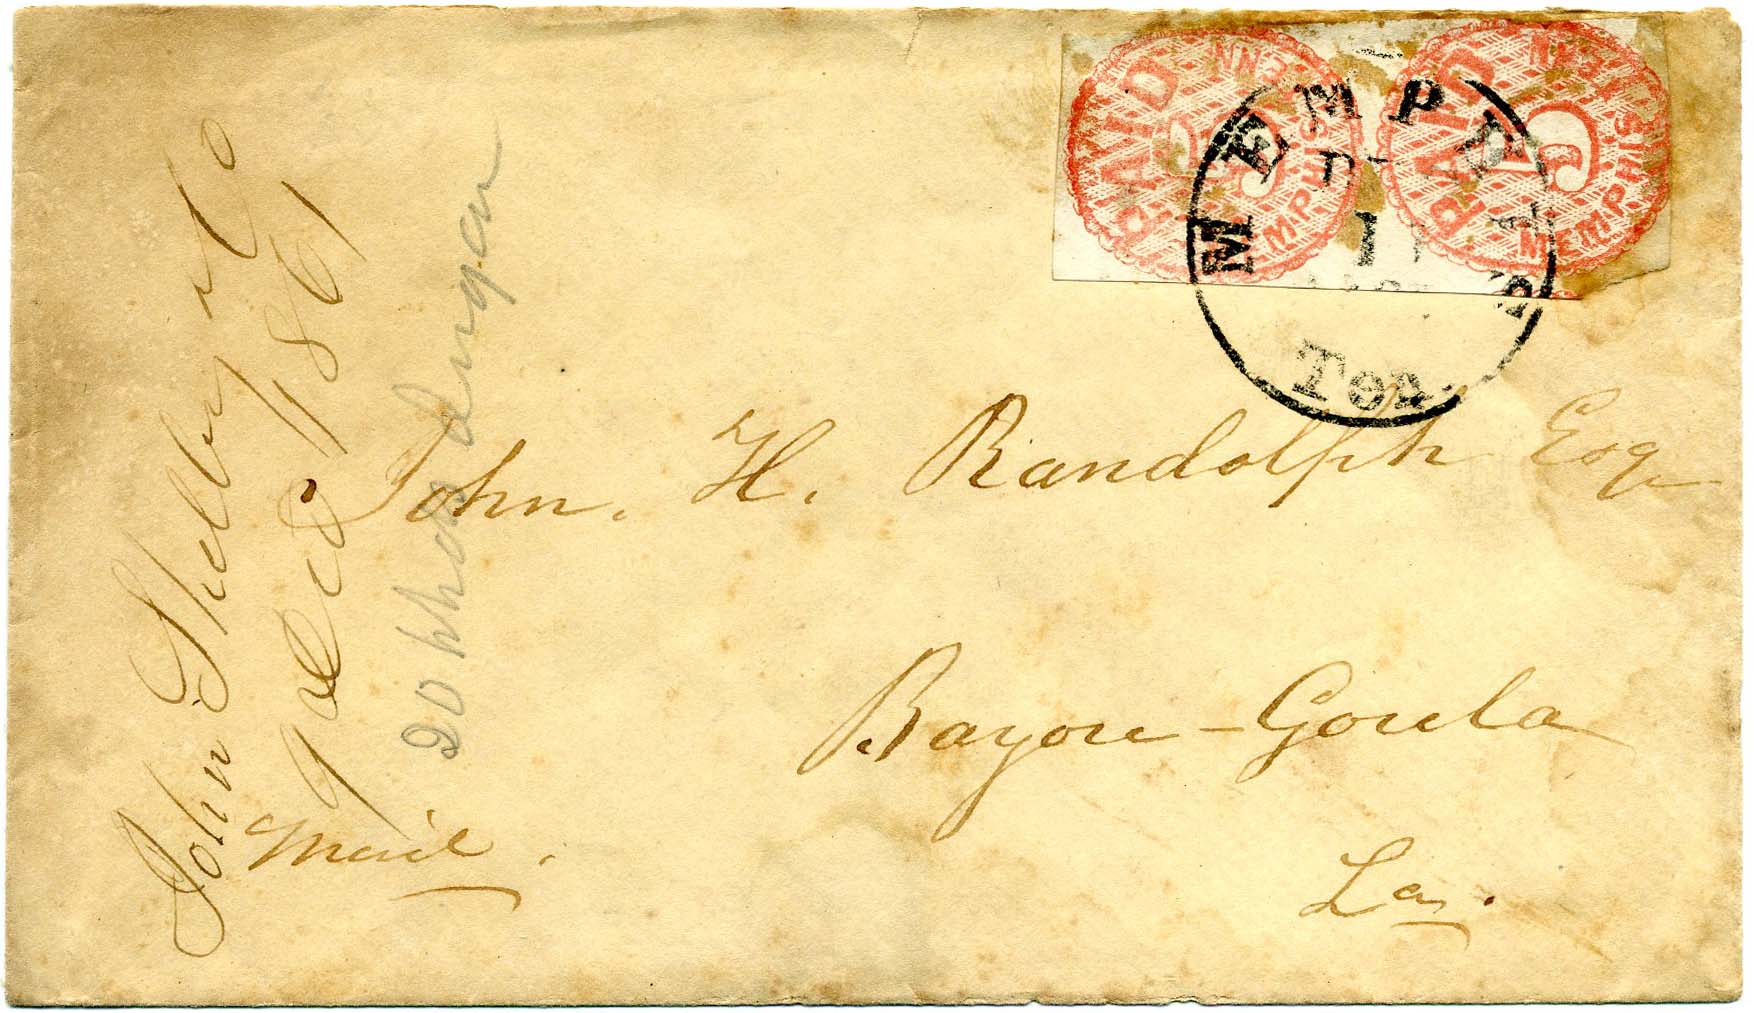 PAID 5 MEMPHIS TENN
PAID 5 MEMPHIS TENN
MEMPHIS
D
1
Ten.
John. H. Randolph Esq
Bayou-Goula
La.
Mail.
John Shelby & Co
9 Dec 1861
20 hhds sugar